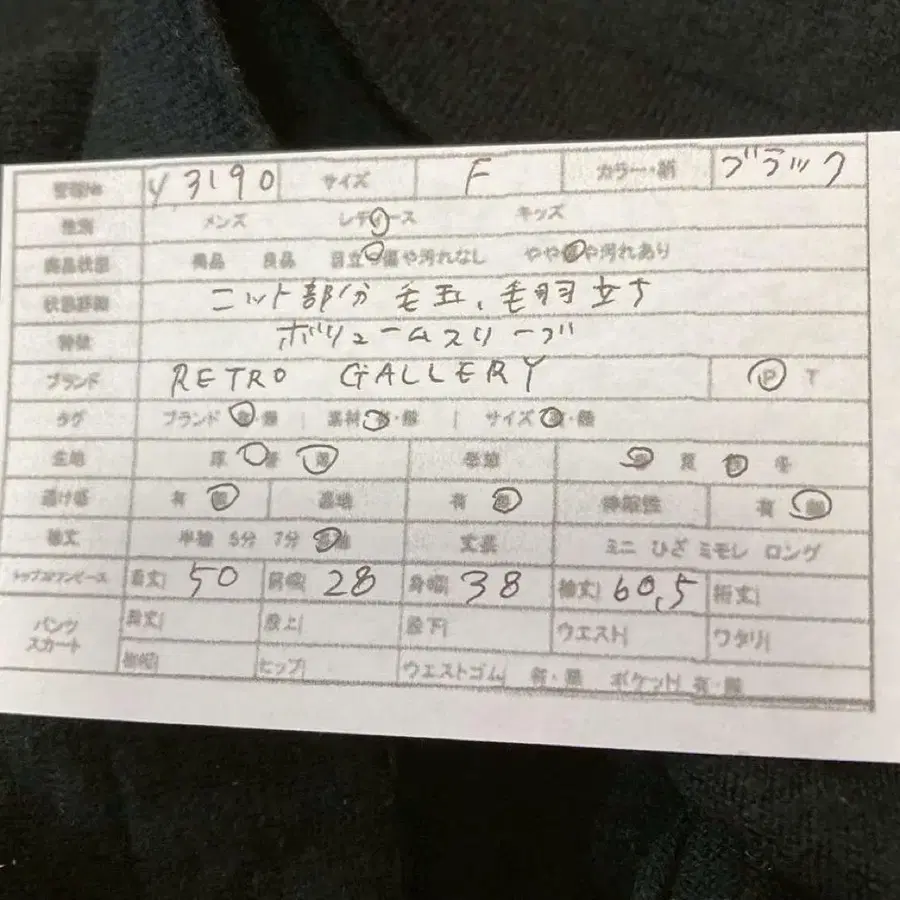 管理No y3190 サイズ F カラー・柄 ブラック
性別 メンズ レディース キッズ
商品状態 美品 良品 目立つ傷や汚れなし やや傷や汚れあり
状態詳細 ニット部分 毛玉、毛羽立ち
特徴 ボリュームスリーブ
ブランド RETRO GALLERY P T
タグ ブランド 有・無 | 素材 有・無 | サイズ 有・無
生地 厚 普 薄 季節 春 夏 秋 冬
透け感 有 無 裏地 有 無 伸縮性 有 無
袖丈 半袖 5分 7分 長袖 丈長 ミニ ひざ ミモレ ロング
トップス/ワンピース 着丈| 50 肩幅| 28 身幅| 38 袖丈| 60,5 裄丈|
パンツ スカート 総丈| 股上| 股下| ウエスト| ワタリ|
裾幅| ヒップ| ウエストゴム| 有・無 ポケット| 有・無